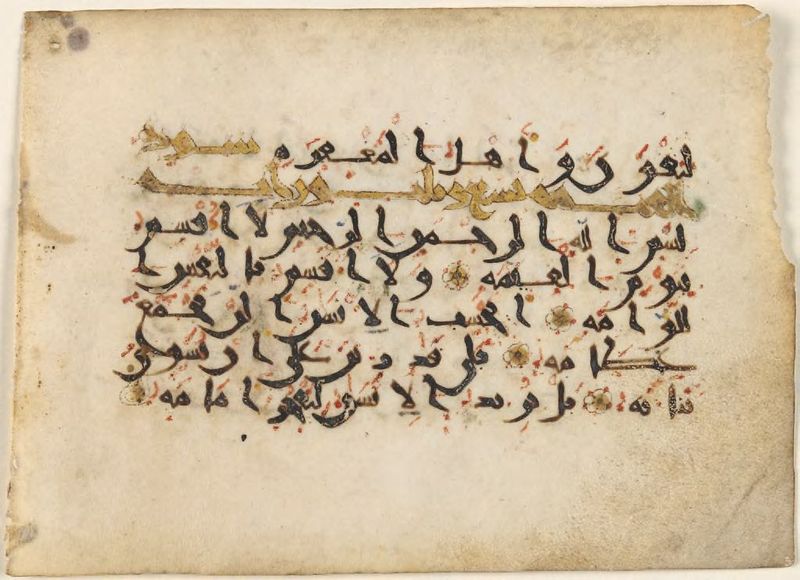 لتقوى وا هل ا لمغفرة سورة
القيمة تسع وثلثون اية
بسم ا لله ا لرحمن ا لرحيم لا ا قسم
بيوم ا لقيمة ولا ا قسم با لنفس ا
للوا مة ا يحسب ا لا نسن ا لن نجمع
عظا مه بلى قد رين على ا ن نسوى
بنا نه بل يريد ا لا نسن ليفجر ا ما مه